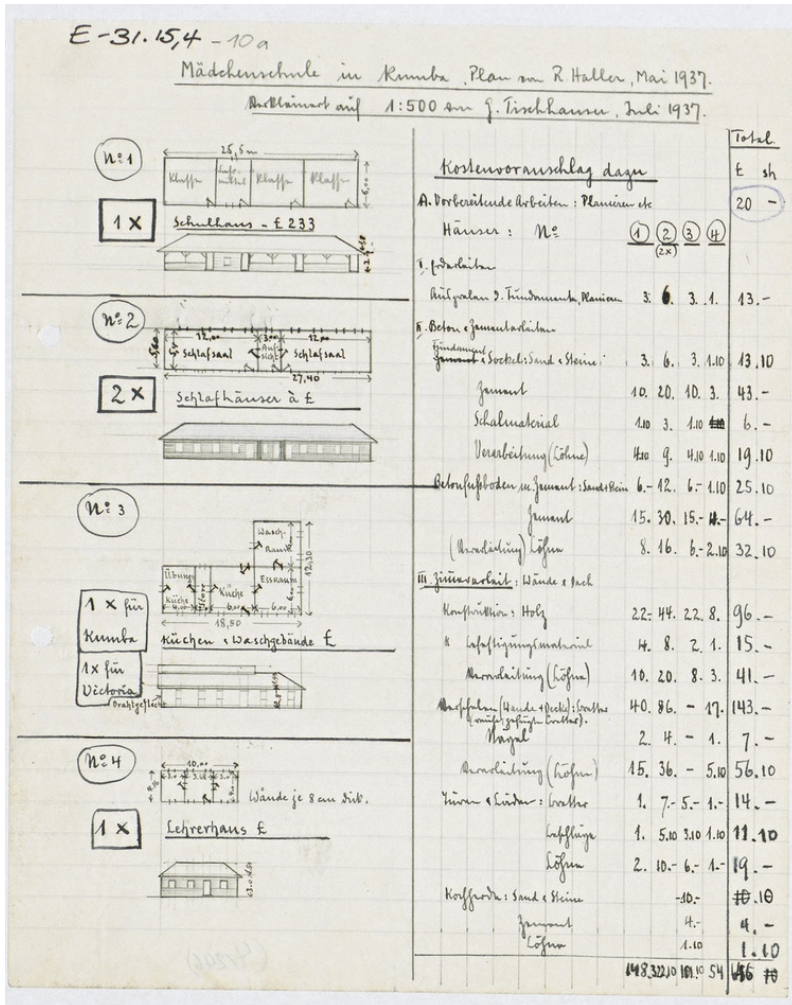 E-31.15,4 - 10a
Mädchenschule in Kumba, Plan von R. Haller, Mai 1937.
Verkleinert auf 1:500 von G. Tischhauser, Juli 1937.
Nº 1
25,5 m
Klasse Klasse Klasse
6,00
1 x
Schulhaus - £ 233
Nº 2
12,00 3,00 12,00
Schlafsaal Auf-sicht Schlafsaal
27,40
2 x
Schlafhäuser à £
Nº 3
Wasch-
Raum
12,30
Übung
Küche Küche Essraum
4,00 6,00 6,00
18,50
1 x für
Kumba
Küchen & Waschgebäude £
1 x für
Victoria
Drahtgeflecht
Nº 4
10,00
Wände je 8 cm dick.
1 x
Lehrerhaus £
Total
Kostenvoranschlag dazu £ sh
A. Vorbereitende Arbeiten: Planieren etc 20 -
Häuser: Nº 1 2 3 4
(2x)
I. Erdarbeiten
Ausgraben d. Fundamente, Planieren 3. 6. 3. 1. 13.-
II. Beton & Zementarbeiten
Fundament & Sockel: Sand & Steine 3. 6. 3. 1.10 13.10
Zement 10. 20. 10. 3. 43.-
Schalmaterial 1.10 3. 1.10 6.-
Verarbeitung (Löhne) 4.10 9. 4.10 1.10 19.10
Betonfußboden m. Zement: Sand & Stein 6.- 12. 6.- 1.10 25.10
Zement 15. 30. 15.- 4.- 64.-
(Verarbeitung) Löhne 8. 16. 6.- 2.10 32.10
III. Zimmerarbeit: Wände & Dach
Konstruktion: Holz 22.- 44. 22. 8. 96.-
" Befestigungsmaterial 4. 8. 2. 1. 15.-
Verarbeitung (Löhne) 10. 20. 8. 3. 41.-
Verschalen (Wände & Decke): Bretter 40. 86. - 17. 143.-
Nägel 2. 4. - 1. 7.-
Verarbeitung (Löhne) 15. 36. - 5.10 56.10
Türen & Läden: Bretter 1. 7.- 5.- 1.- 14.-
Beschläge 1. 5.10 3.10 1.10 11.10
Löhne 2. 10.- 6.- 1.- 19.-
Kochherde: Sand & Steine -10.- .10
Zement 4.- 4.-
Löhne 1.10 1.10
148. 322.10 101.10 54